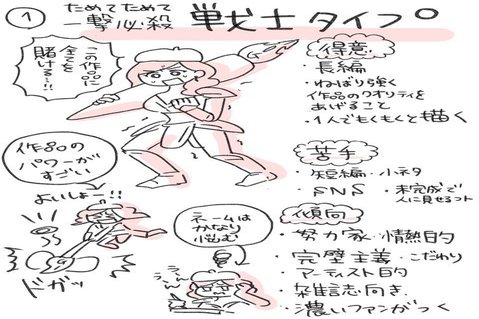 ①
ためてためて
一撃必殺
戦士タイプ。
この作品に
全てを
賭ける〜!!
得意
・長編
・ねばり強く
作品のクオリティを
あげること
・1人でもくもくと描く
作品の
パワーが
すごい
よいしょー!!
ドガッ
苦手
・短編・小ネタ
・SNS ・未完成で
人に見せるコト
ネームは
かなり
悩む
うーん
うーん
傾向
・努力家・情熱的
・完璧主義・こだわり
・アーティスト的
・雑誌向き
・濃いファンがつく